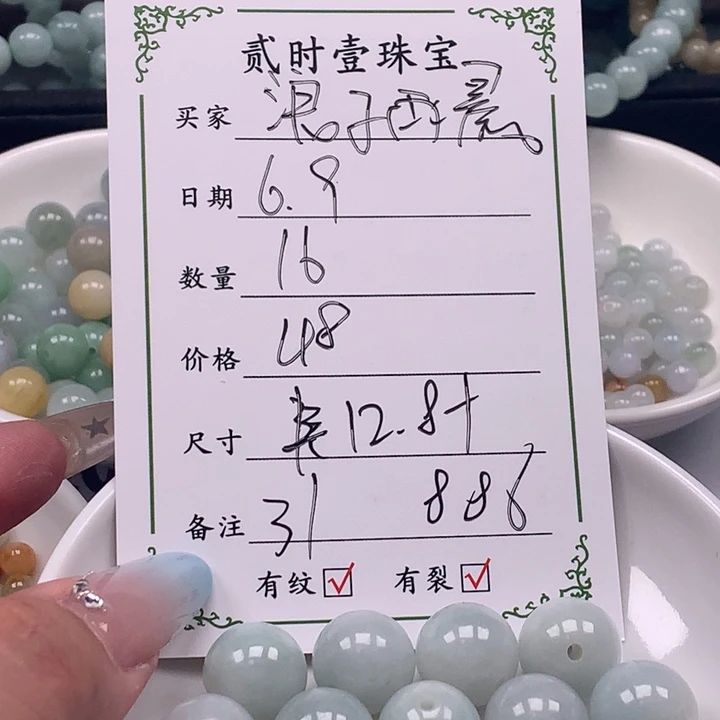 贰时壹珠宝
买家 浪子西晨
日期 6.9
数量 16
价格 48
尺寸 12.8+
备注 31 886
有纹☑ 有裂☑